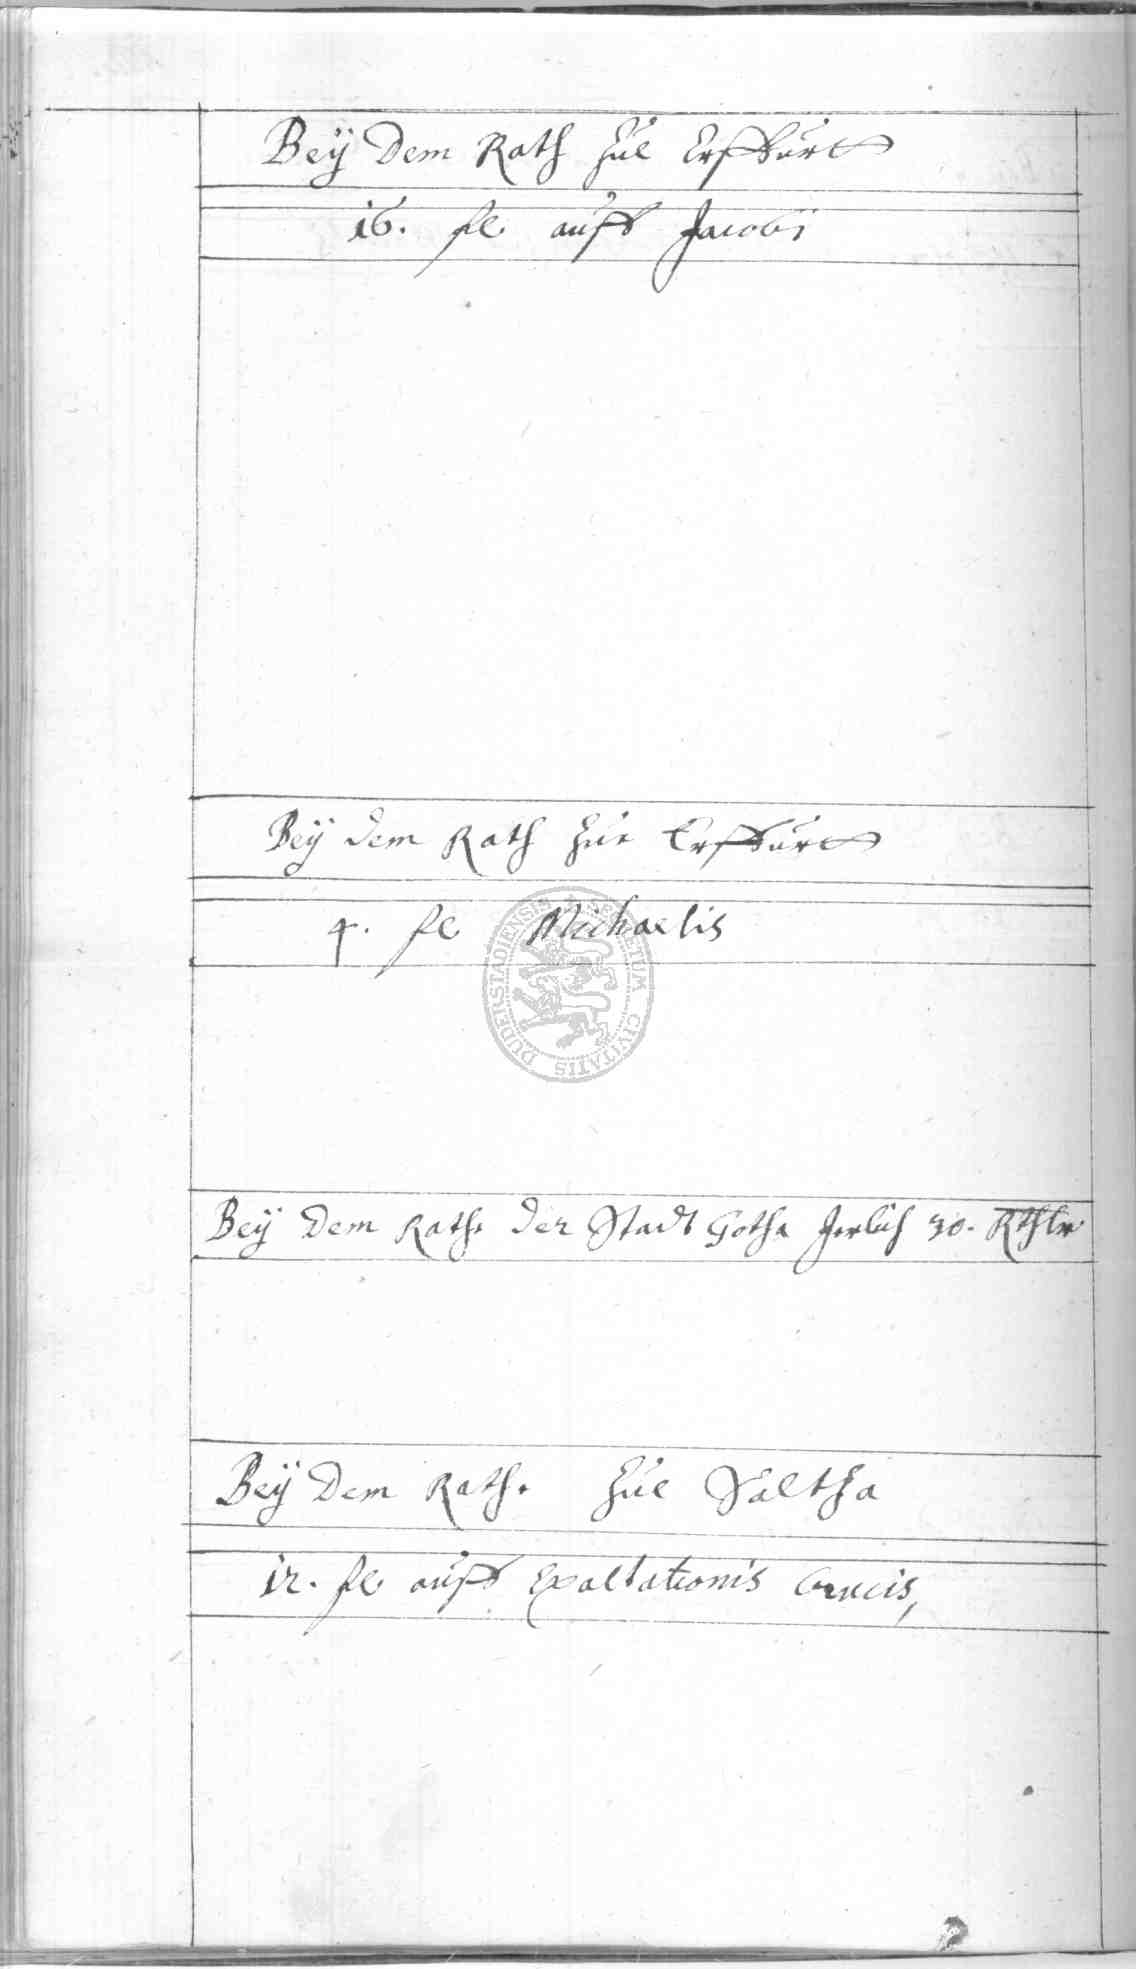 Beÿ dem Rath zue Erffurt
16. fl. auff Jacobi
Beÿ dem Rath zue Erffurt
4. fl. Michaelis
SECRETUM CIVITATIS DUDERSTADIENSIS
Beÿ dem Rath. der Stadt Gotha Jerlich 30. Rthlr
Beÿ dem Rath. zue Saltha
12. fl. auff Exaltationis Crucis,